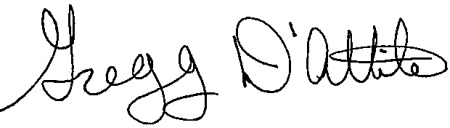 Gregg D'Attile